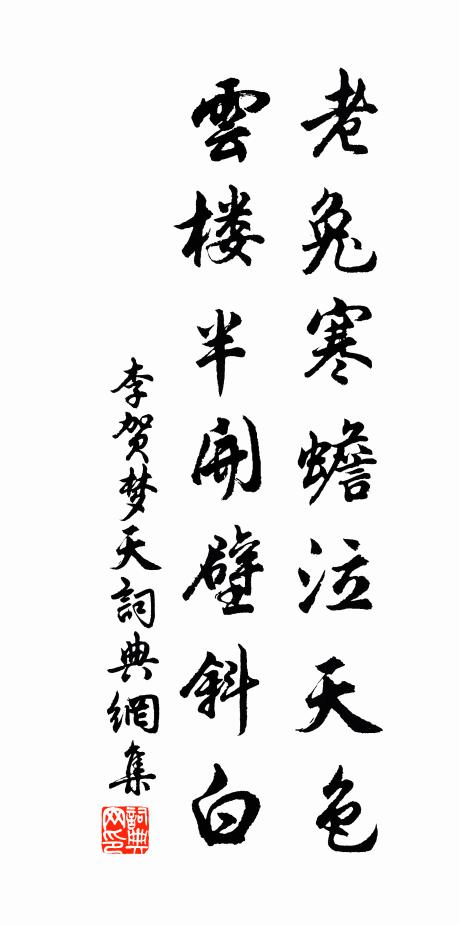 老兔寒蟾泣天色
雲楼半開壁斜白
李贺梦天詞典網集
詞典
网印